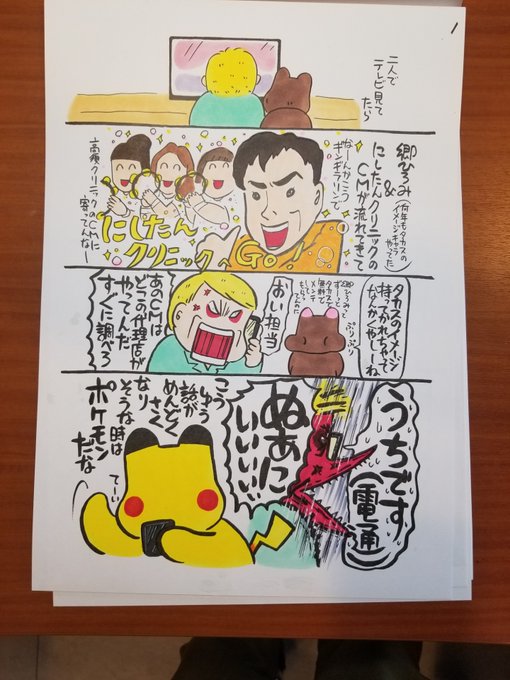 1
二人で
テレビ見て
たら
郷ひろみ
(何年もタカスの
イメージキャラ
やってた)
&
にしたんクリニックの
CMが流れてきて
なーんかこう
ギンギラリンで
高須クリニックのCMに
寄ってんなー
にしたん
クリニック
Go!
タカスのイメージ
持ってかれちゃって
なんかくやしーね
郷ひろみって
ずーっと
タカスで
無料で
メンテ
ぷりぷり
おい担当
あのCMは
どこの代理店が
やってんだ
すぐに調べろ
うちです
(電通)
ぬぁに
いいいい!
こう
ゆう
話が
めんどく
さく
なり
そうな時は
ポケモン
だな
てぃー